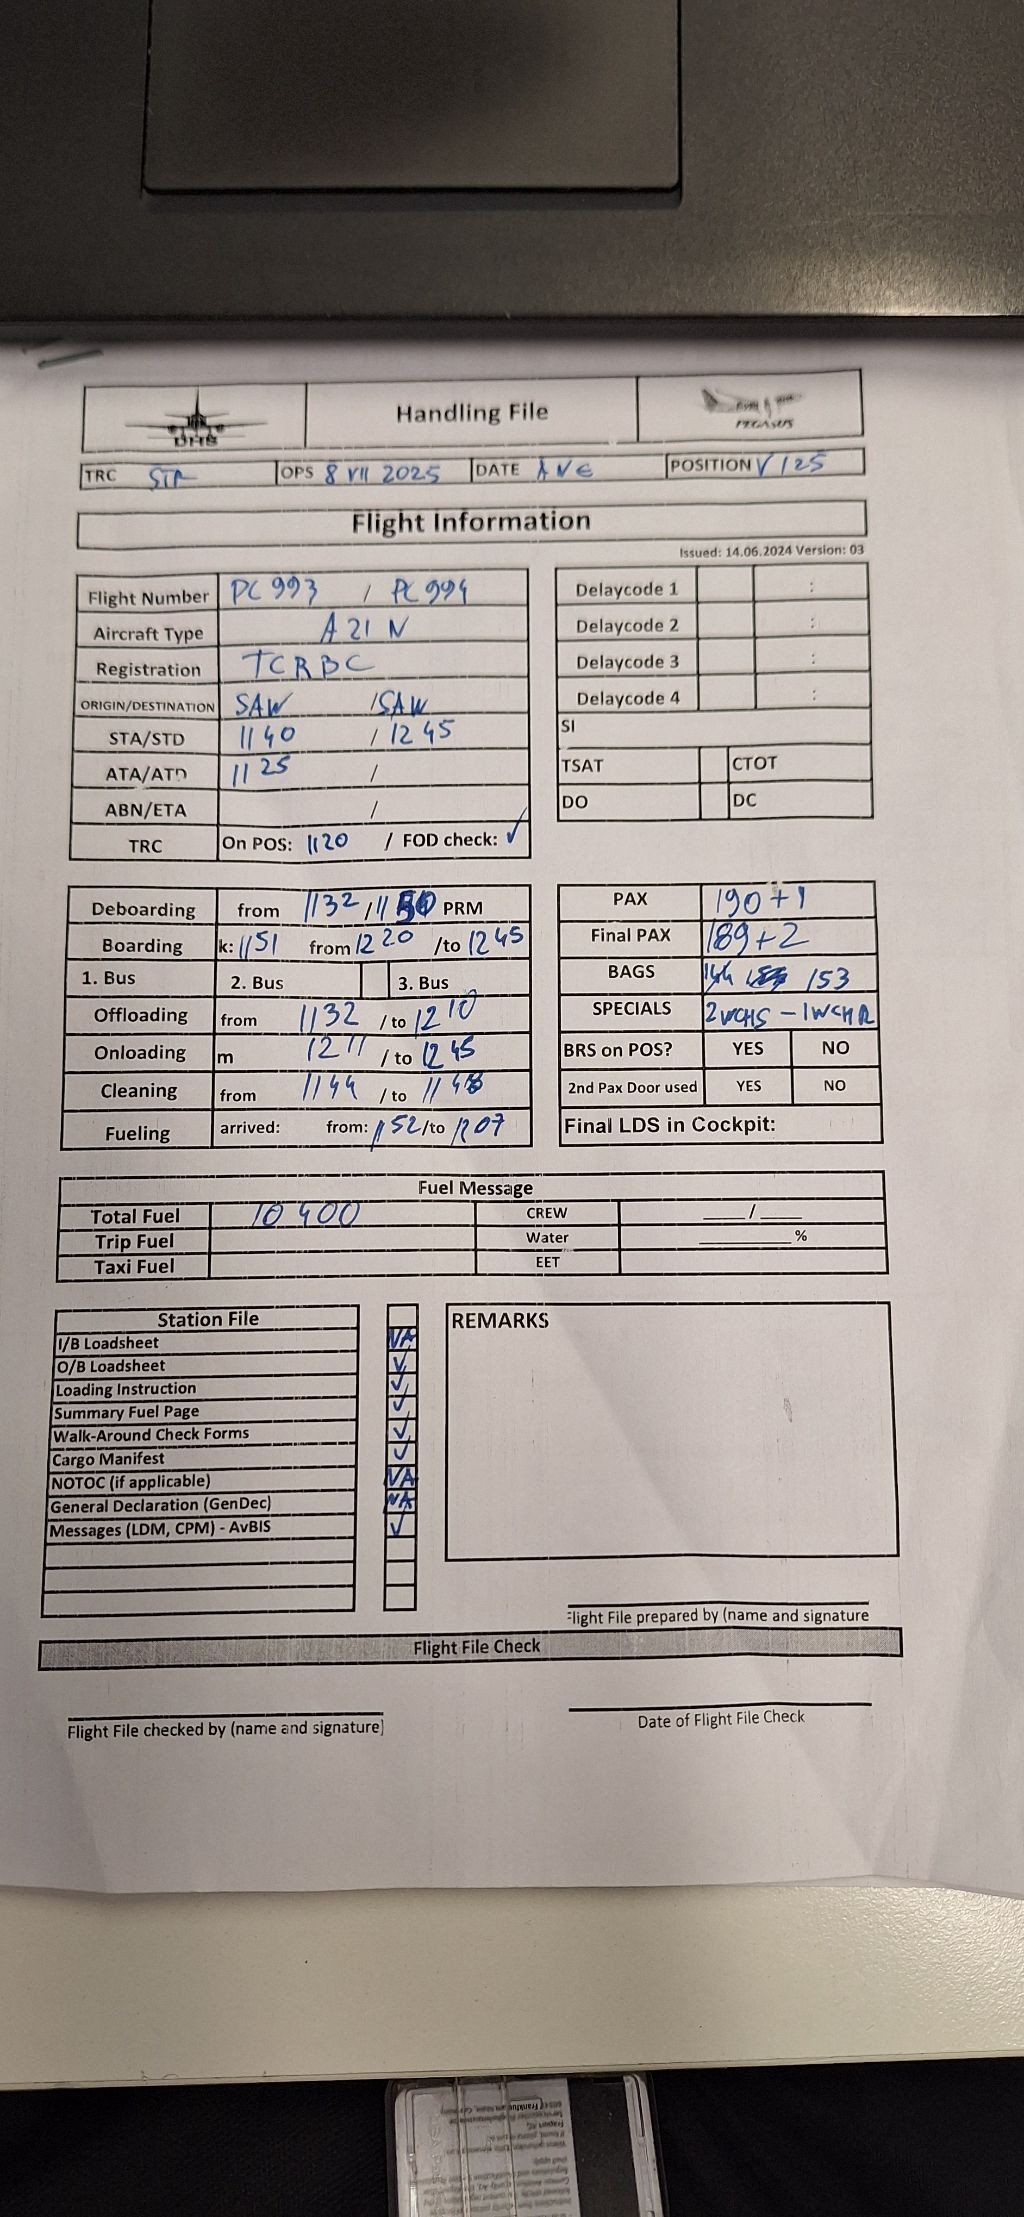 DHS
Handling File
PEGASUS
TRC STR OPS 8 VII 2025 DATE AVE POSITION V125
Flight Information
Issued: 14.06.2024 Version: 03
Flight Number PC 993 / PC 994
Aircraft Type A21N
Registration TCRBC
ORIGIN/DESTINATION SAW /SAW
STA/STD 1140 / 1245
ATA/ATD 1125 /
ABN/ETA /
TRC On POS: 1120 / FOD check: ✓
Delaycode 1 :
Delaycode 2 :
Delaycode 3 :
Delaycode 4 :
SI
TSAT CTOT
DO DC
Deboarding from 1132 / 1150 PRM
Boarding k: 1151 from 1220 /to 1245
1. Bus 2. Bus 3. Bus
Offloading from 1132 / to 1210
Onloading m 1211 / to 1245
Cleaning from 1144 / to 1148
Fueling arrived: from: 1152 /to 1207
PAX 190+1
Final PAX 189+2
BAGS 153
SPECIALS 2WCHS - 1WCHR
BRS on POS? YES NO
2nd Pax Door used YES NO
Final LDS in Cockpit:
Fuel Message
Total Fuel 10400 CREW ___/___
Trip Fuel Water ______%
Taxi Fuel EET
Station File
I/B Loadsheet NA
O/B Loadsheet ✓
Loading Instruction ✓
Summary Fuel Page ✓
Walk-Around Check Forms ✓
Cargo Manifest ✓
NOTOC (if applicable) NA
General Declaration (GenDec) NA
Messages (LDM, CPM) - AvBIS ✓
REMARKS
Flight File prepared by (name and signature
Flight File Check
Flight File checked by (name and signature)
Date of Flight File Check